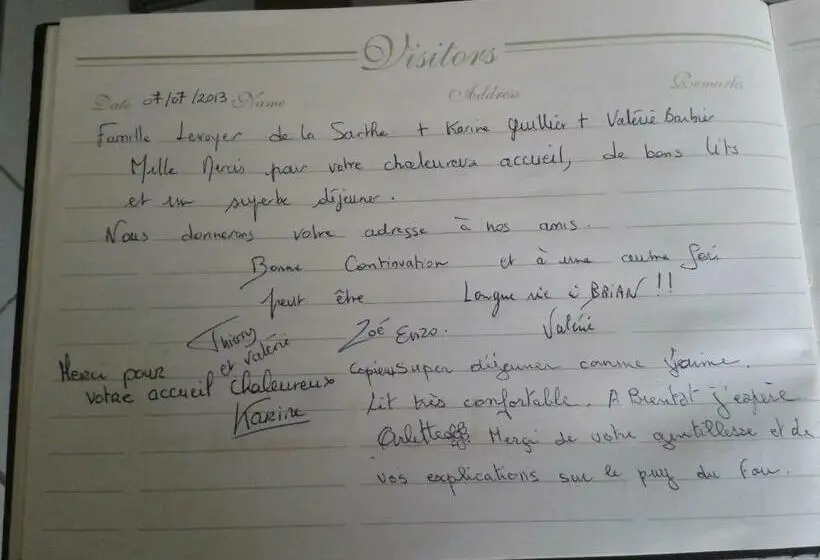 Visitors
Date 07/07/2013 Name Address Remarks
Famille Levoyer de la Sarthe + Karine Guillier + Valérie Barbier
Mille Mercis pour votre chaleureux accueil, de bons lits
et un superbe déjeuner.
Nous donnerons votre adresse à nos amis.
Bonne Continuation et à une autre fois
peut être Longue vie à BRIAN !!
Thierry et Valérie Zoé Enzo. Valérie
Merci pour
votre accueil chaleureux
Karine
Copieux Super déjeuner comme j'aime.
Lit très confortable. A Bientôt j'espère
Arlette Merçi de votre gentillesse et de
vos explications sur le puy du Fou.